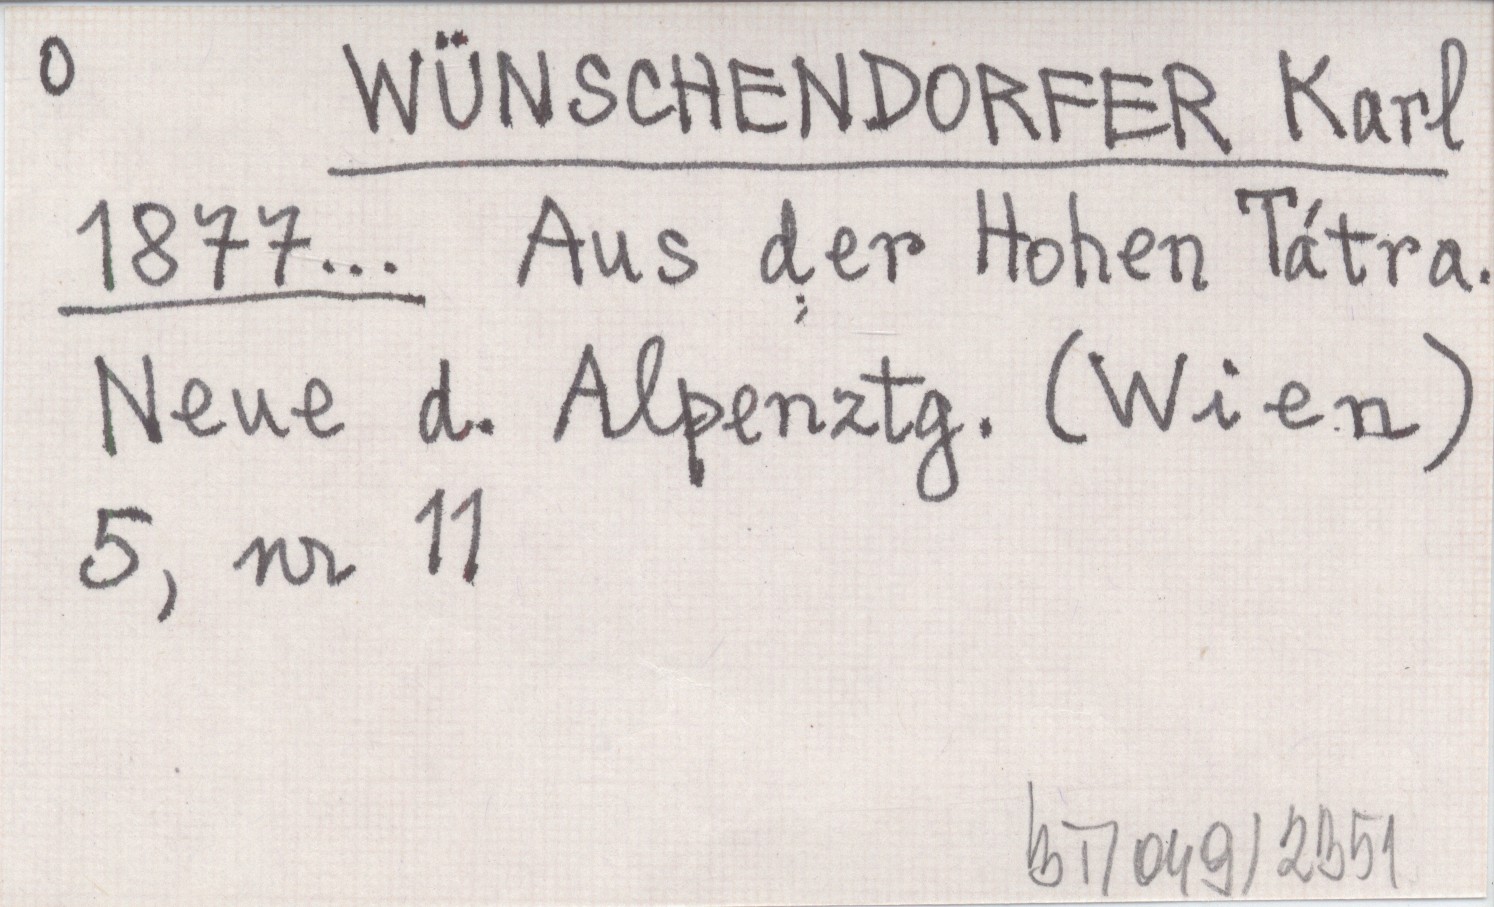 0 WÜNSCHENDORFER Karl
1877... Aus der Hohen Tátra.
Neue d. Alpenztg. (Wien)
5, nr 11